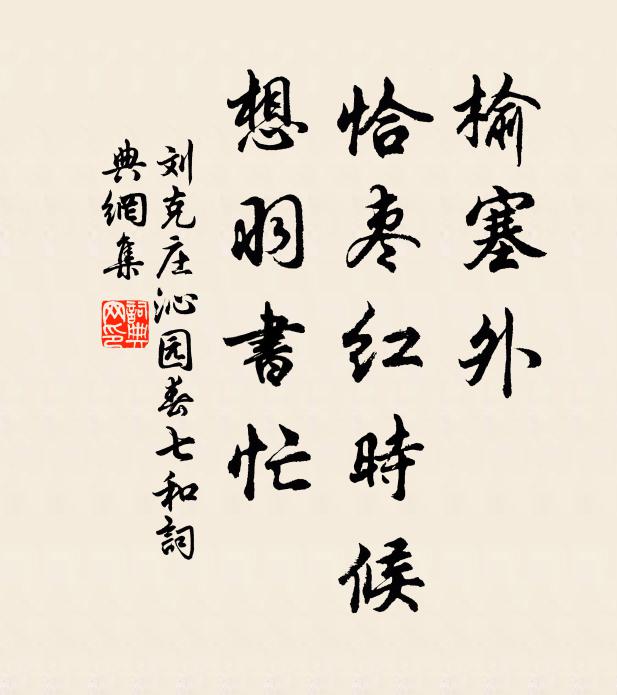 榆塞外
恰枣红時候
想羽書忙
刘克庄沁园春七和詞
典網集
詞典
网印